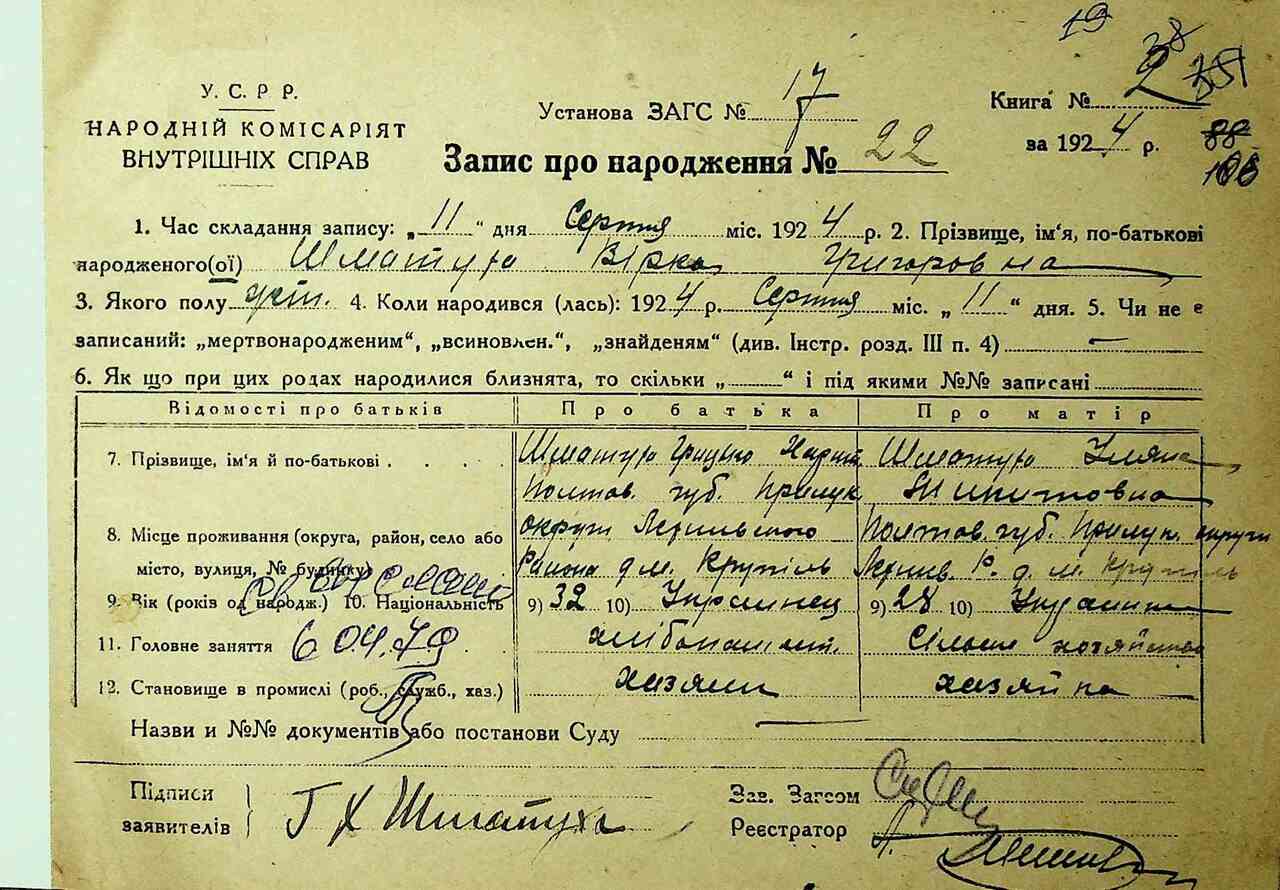 19
38
У. С. Р Р.
НАРОДНІЙ КОМІСАРІЯТ
ВНУТРІШНІХ СПРАВ
Установа ЗАГС № 17
Книга № 2
за 1924 р.
88
Запис про народження № 22
1. Час складання запису: „11" дня Серпня міс. 1924 р. 2. Прізвище, ім'я, по-батькові
народженого(ої) Шматуха Вірка Григоровна
3. Якого полу жін. 4. Коли народився (лась): 1924 р. Серпня міс. „11" дня. 5. Чи не є
записаний: „мертвонародженим", „всиновлен.", „знайденям" (див. Інстр. розд. III п. 4) —
6. Як що при цих родах народилися близнята, то скільки „ " і під якими №№ записані
Відомості про батьків Про батька Про матір
7. Прізвище, ім'я й по-батькові . . . . . Шматуха Грицько Харит. Шматуха Уляна
Полтов. губ. Прилук Микитовна
8. Місце проживання (округа, район, село або округи Ярешського Полтов. губ. Прилук. округи
місто, вулиця, № будинку) Района д. м. Крупіль Р. д. м. Крупіль
9. Вік (років од народж.) 10. Національність 9) 32 10) Украинец 9) 28 10) Украинка
11. Головне заняття хлібопашит. Сільське хозяйство
6 04.79
12. Становище в промислі (роб., служб., хаз.) хазяин хазяйка
Назви и №№ документів або постанови Суду —
Підписи
заявителів Г Х Шматуха
Зав. Загсом
Реєстратор